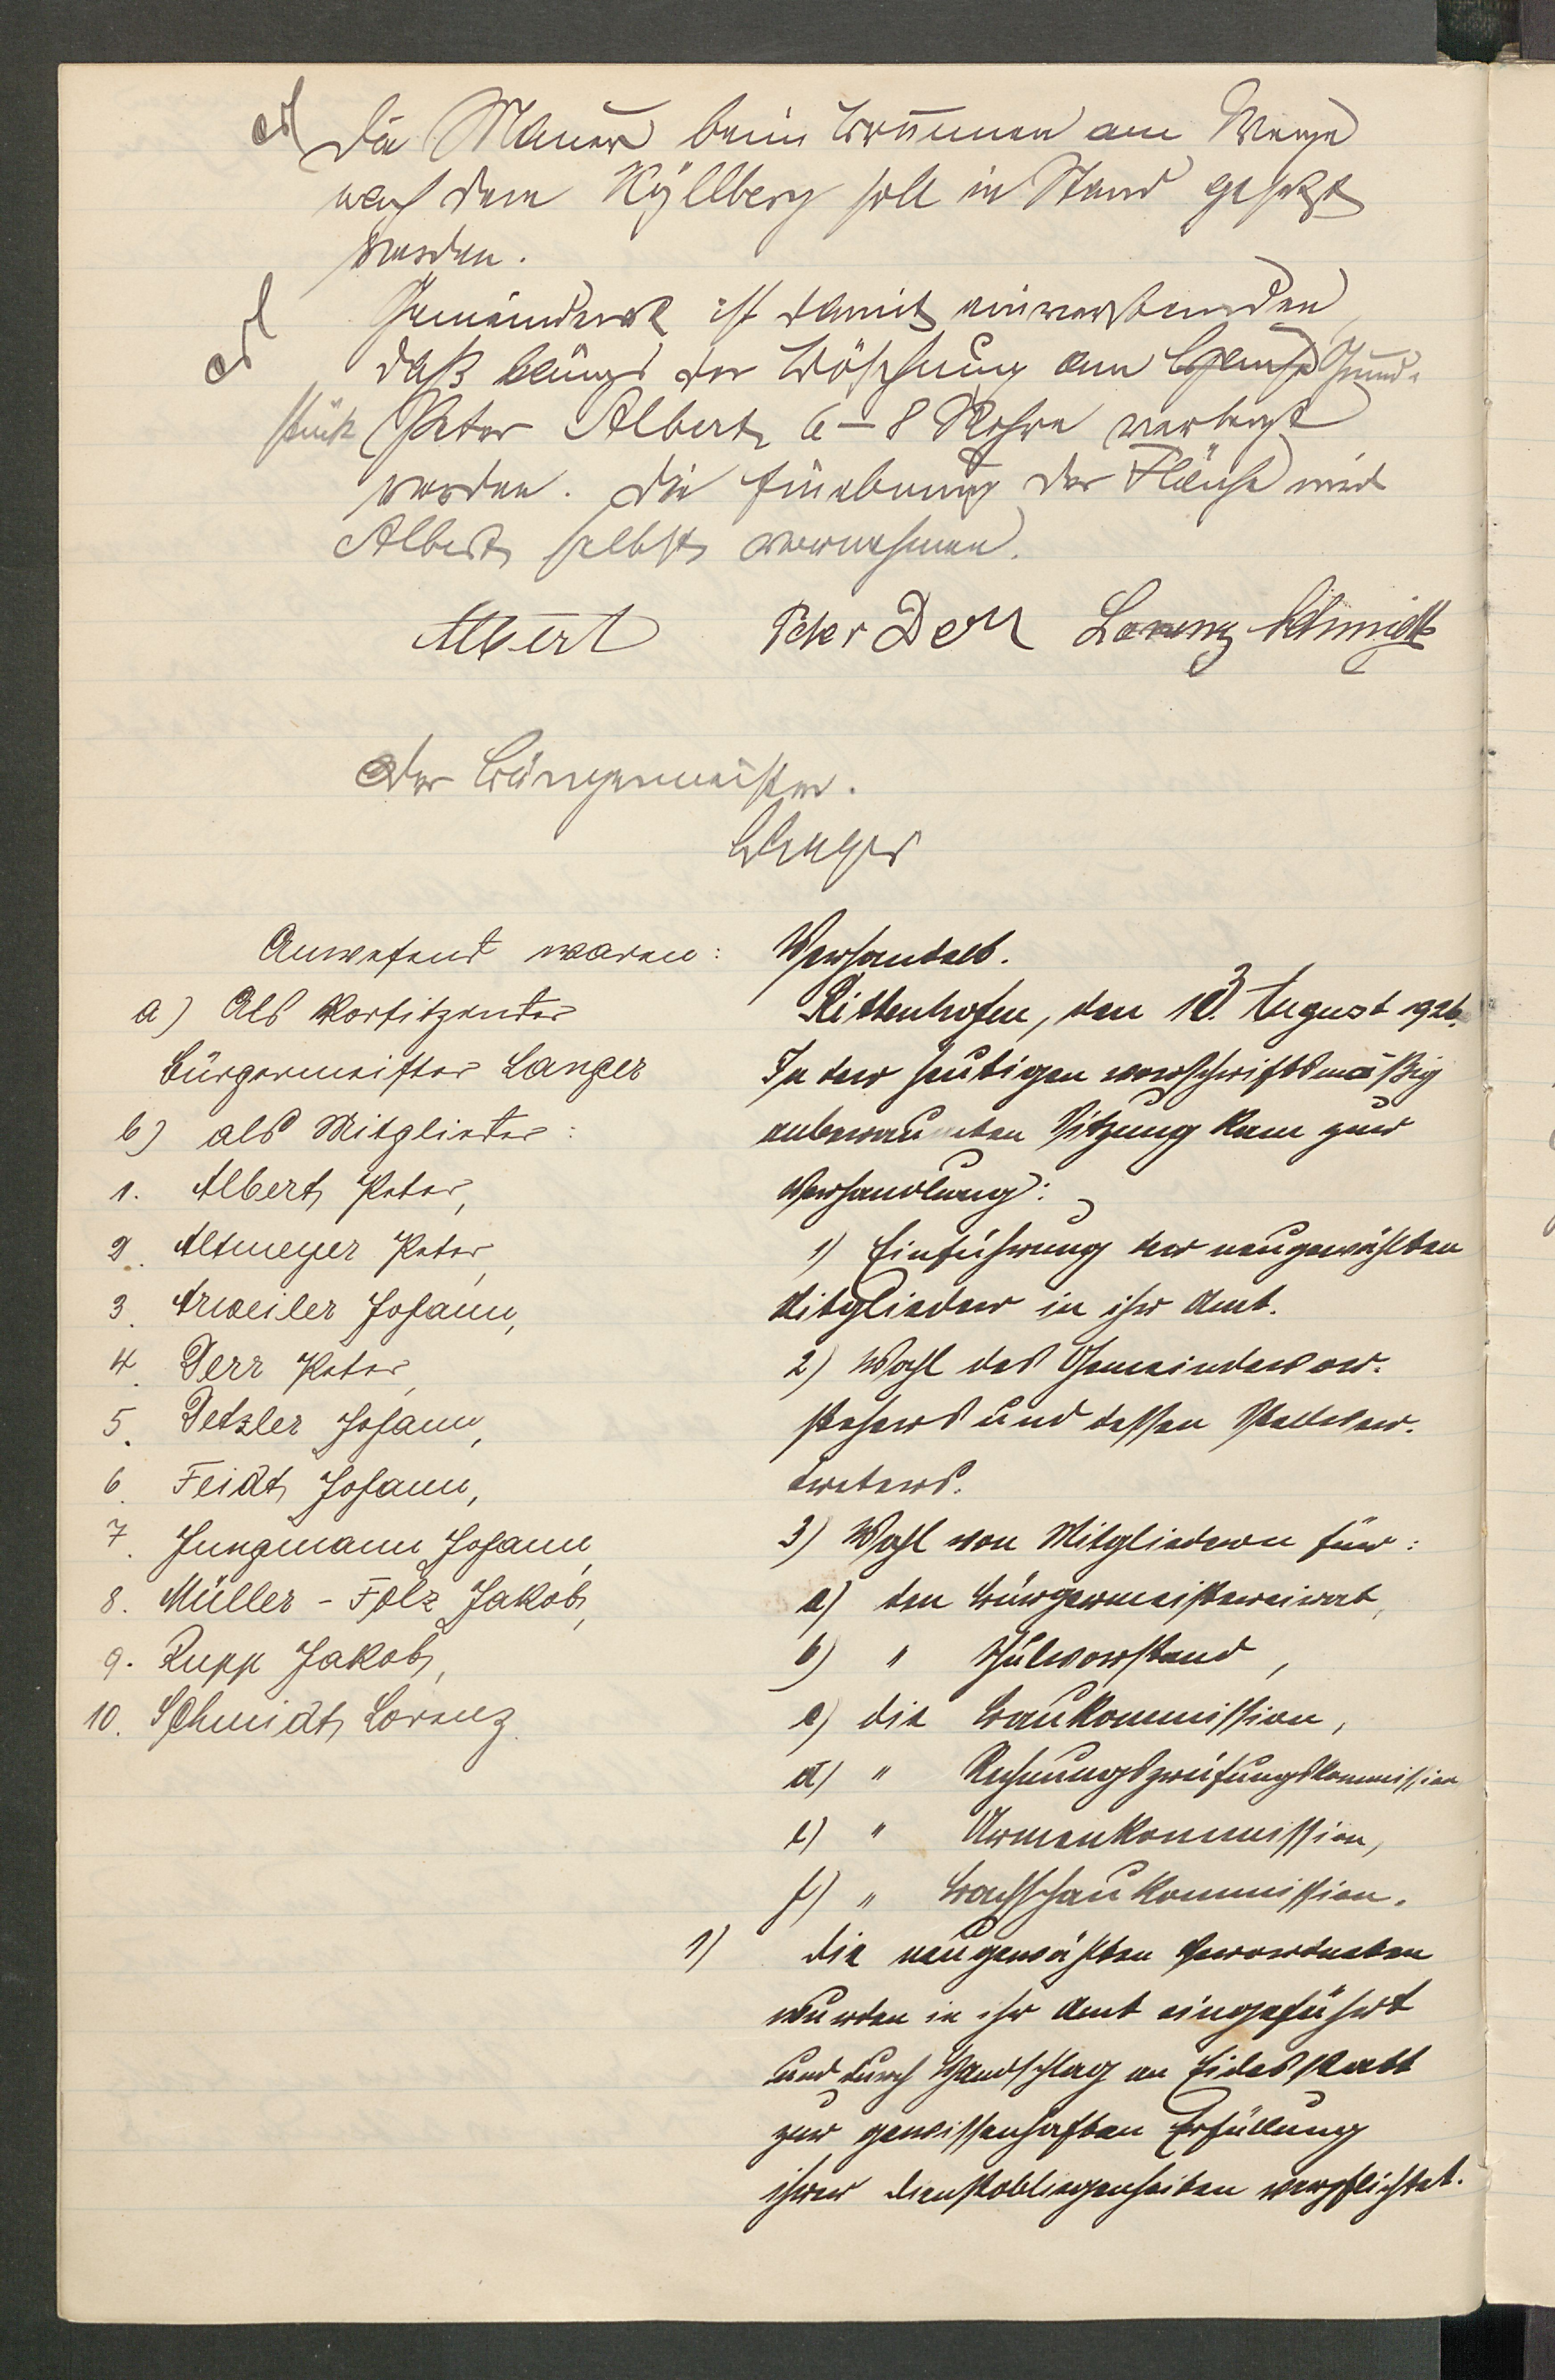 erl Die Mauer beim Brunnen am Wege
nach dem Kÿllberg soll in Stand gesetzt
werden.
erl Gemeinderat ist damit einverstanden,
daß längs der Böschung am Grund-
stück Peter Albert 6–8 Rohre verlegt
werden. Die Einebnung der Fläche wird
Albert selbst vornehmen.
Albert Peter Derr Lorenz Schmidt
Der Bürgermeister.
Langer
Anwesend waren:
a) Als Vorsitzender
Bürgermeister Langer
b) als Mitglieder:
1. Albert Peter,
2. Altmeyer Peter,
3. Arweiler Johann,
4. Derr Peter,
5. Detzler Johann,
6. Feidt Johann,
7. Jungmann Johann,
8. Müller-Folz Jakob,
9. Rupp Jakob,
10. Schmidt Lorenz.
Verhandelt.
Rittenhofen, den August 1926.
In der heutigen vorschriftsmäßig
anberaumten Sitzung kam zur
Verhandlung:
1) Einführung der neugewählten
Mitglieder in ihr Amt.
2) Wahl des Gemeindevor-
stehers und dessen Stellver-
treters.
3) Wahl von Mitgliedern für:
a) den Bürgermeistereirat,
b) " Schulvorstand,
c) die Baukommission,
d) " Rechnungsprüfungskommission
e) " Armenkommission,
f) " Bachschaukommission.
1) Die neugewählten Verordneten
wurden in ihr Amt eingeführt
und durch Handschlag an Eidesstatt
zur gewissenhaften Erfüllung
ihrer Dienstobliegenheiten verpflichtet.